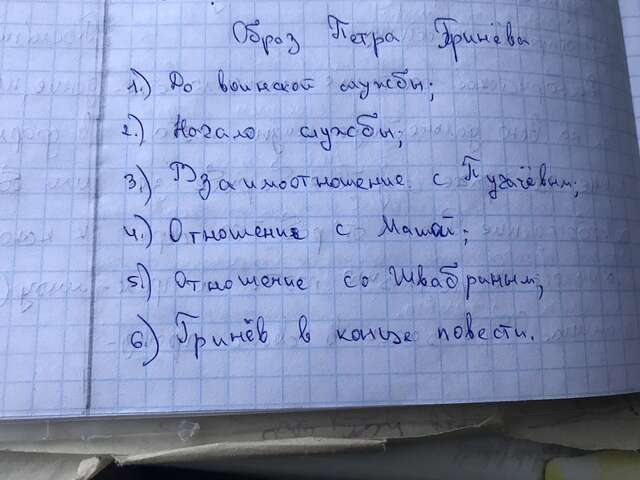 Образ Петра Гринёва
1.) До воинской службы;
2.) Начало службы;
3.) Взаимоотношение с Пугачёвым;
4.) Отношение с Машой;
5.) Отношение со Швабриным;
6.) Гринёв в конце повести.